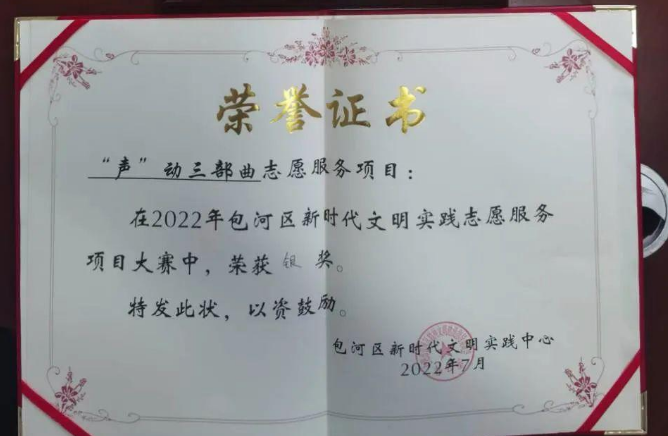 荣誉证书
“声”动三部曲志愿服务项目：
在2022年包河区新时代文明实践志愿服务
项目大赛中，荣获银奖。
特发此状，以资鼓励。
包河区新时代文明实践中心
2022年7月